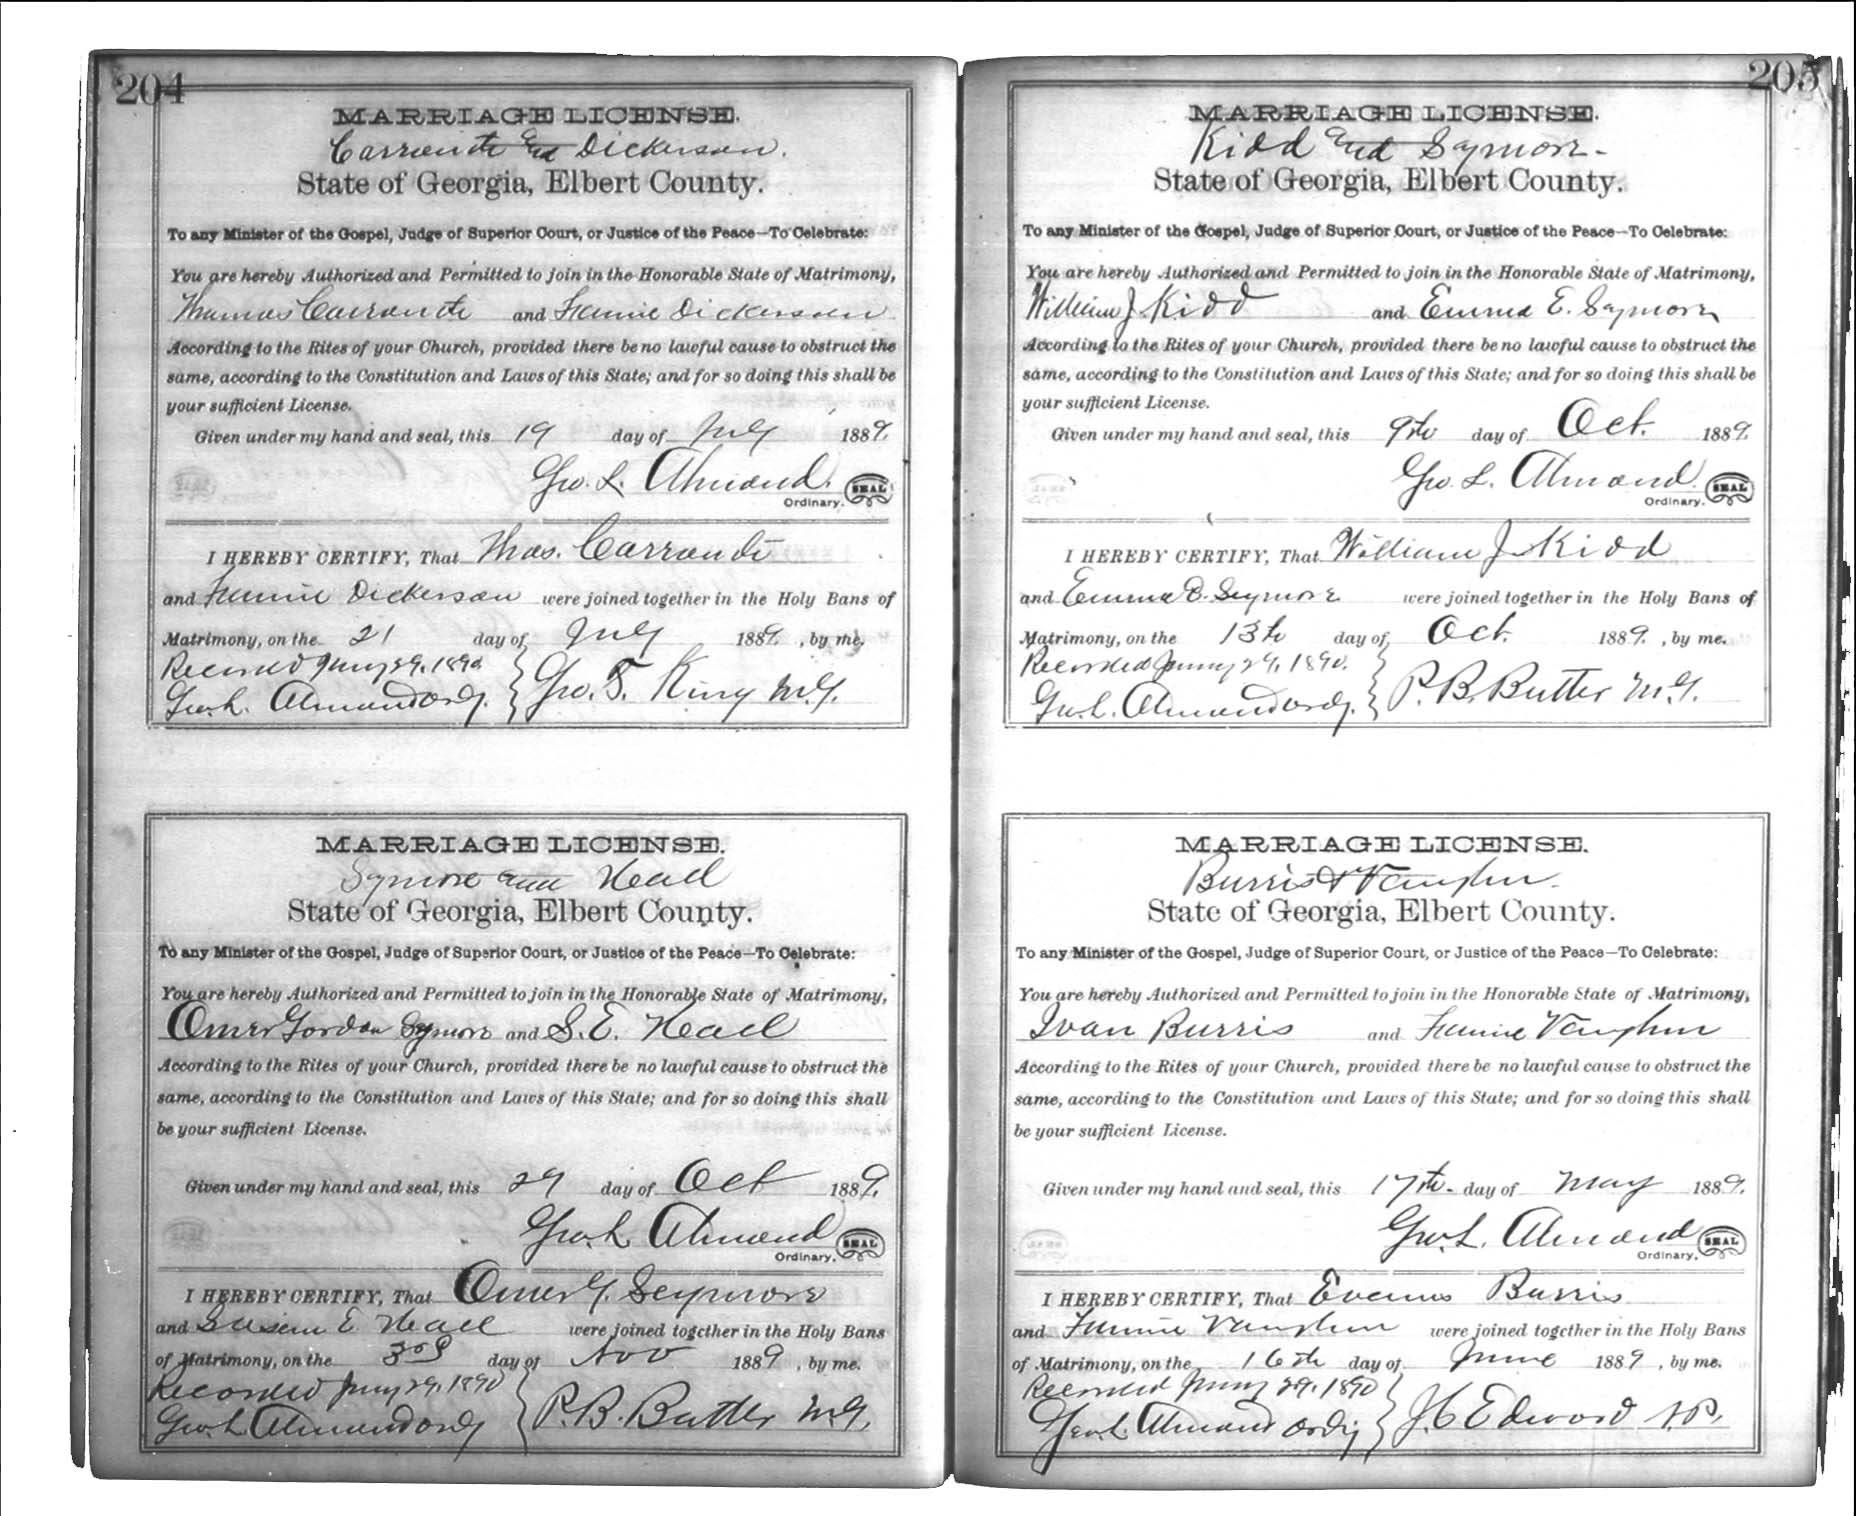 204
MARRIAGE LICENSE.
Carrouth and Dickerson.
State of Georgia, Elbert County.
To any Minister of the Gospel, Judge of Superior Court, or Justice of the Peace—To Celebrate:
You are hereby Authorized and Permitted to join in the Honorable State of Matrimony,
Thomas Carrouth and Fannie Dickerson
According to the Rites of your Church, provided there be no lawful cause to obstruct the
same, according to the Constitution and Laws of this State; and for so doing this shall be
your sufficient License.
Given under my hand and seal, this 19 day of July 1889.
Geo. L. Almand.
Ordinary. SEAL
I HEREBY CERTIFY, That Thos. Carrouth
and Fannie Dickerson were joined together in the Holy Bans of
Matrimony, on the 21 day of July 1889, by me.
Recorded Jany 29, 1890
Geo. L. Almand Ordy. } Geo. T. King M.G.
MARRIAGE LICENSE.
Symore and Heall
State of Georgia, Elbert County.
To any Minister of the Gospel, Judge of Superior Court, or Justice of the Peace—To Celebrate:
You are hereby Authorized and Permitted to join in the Honorable State of Matrimony,
Omer Gordon Symore and S. E. Heall
According to the Rites of your Church, provided there be no lawful cause to obstruct the
same, according to the Constitution and Laws of this State; and for so doing this shall
be your sufficient License.
Given under my hand and seal, this 29 day of Oct 1889.
Geo. L Almand
Ordinary. SEAL
I HEREBY CERTIFY, That Omer G. Seymore
and Susan E. Heall were joined together in the Holy Bans
of Matrimony, on the 3rd day of Nov 1889, by me.
Recorded Jany 29, 1890
Geo. L Almand Ordy } P. B. Butler M.G.
205
MARRIAGE LICENSE.
Kidd and Symore.
State of Georgia, Elbert County.
To any Minister of the Gospel, Judge of Superior Court, or Justice of the Peace—To Celebrate:
You are hereby Authorized and Permitted to join in the Honorable State of Matrimony,
William J. Kidd and Emma E. Symore
According to the Rites of your Church, provided there be no lawful cause to obstruct the
same, according to the Constitution and Laws of this State; and for so doing this shall be
your sufficient License.
Given under my hand and seal, this 9th day of Oct. 1889.
Geo. L. Almand.
Ordinary. SEAL
I HEREBY CERTIFY, That William J. Kidd
and Emma E. Seymore were joined together in the Holy Bans of
Matrimony, on the 13th day of Oct. 1889, by me.
Recorded Jany 29, 1890.
Geo. L. Almand Ordy. } P. B. Butler M.G.
MARRIAGE LICENSE.
Burris & Vaughn.
State of Georgia, Elbert County.
To any Minister of the Gospel, Judge of Superior Court, or Justice of the Peace—To Celebrate:
You are hereby Authorized and Permitted to join in the Honorable State of Matrimony,
Ivan Burris and Fannie Vaughn
According to the Rites of your Church, provided there be no lawful cause to obstruct the
same, according to the Constitution and Laws of this State; and for so doing this shall
be your sufficient License.
Given under my hand and seal, this 17th. day of May 1889.
Geo. L. Almand
Ordinary. SEAL
I HEREBY CERTIFY, That Burris
and Fannie Vaughn were joined together in the Holy Bans
of Matrimony, on the 16th day of June 1889, by me.
Recorded Jany 29, 1890
Geo. L. Almand Ordy } J. C Edword N.P.